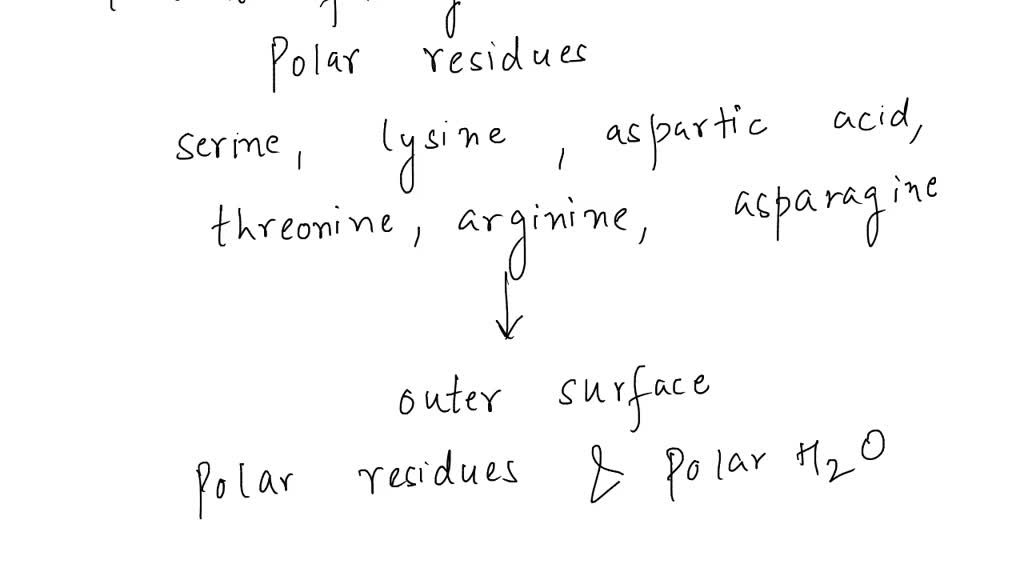 Polar residues
serine, lysine, aspartic acid,
threonine, arginine, asparagine
↓
outer surface
Polar residues & polar H2O